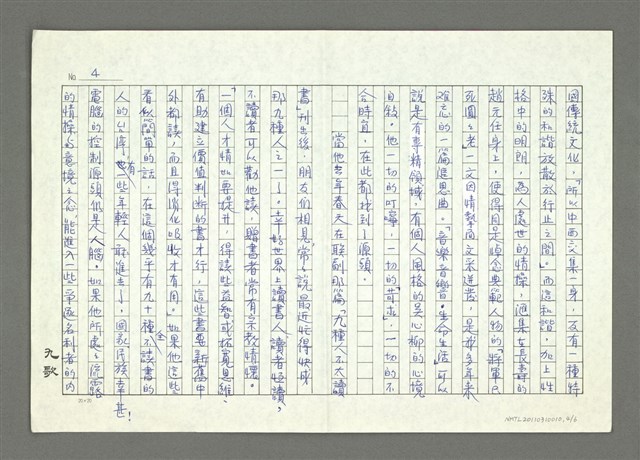 No 4
國傳統文化，「所以中西交集一身，反有一種特
殊的和諧放散於行止之間。」而這和諧，加上性
格中的明朗，為人處世的情操，匯集在長壽的
趙元任身上，使得同是悼念典範人物的
一文因情摯而文采迸發，是我多年來
難忘的一篇追思曲。「音樂音樂‧生命生活」可以
說是有專精領域，有個人風格的吳心柳的心境
自敘。他一切的叮嚀，一切的苛求，一切的不
合時宜，在此都找到了源頭。
當他去年春天在聯副那篇「九種人不大讀
書」刊出後，朋友們相見常常說最近好得快成
那九種人之一了。幸好世界上讀書人讀者恒讀，
不讀者可以勸他讀，贈書者常有宗教情懷。
「一個人才情如要提升，得讀些益智或拓寬思維、
有助建立價值判斷的書才行，這些書要新舊中
外都讀，而且得消化吸收才有用。」如果他這些
看似簡單的話，在這個幾乎有九十種全不讀書的
人的台灣，也有一些年輕人聽進去了，國家民族幸甚！
電腦的控制源頭仍是人腦。如果他所處處流露
的情操的意境之念，能進入一些爭逐名利者的內
九歌
NMTL20110310010, 4/6